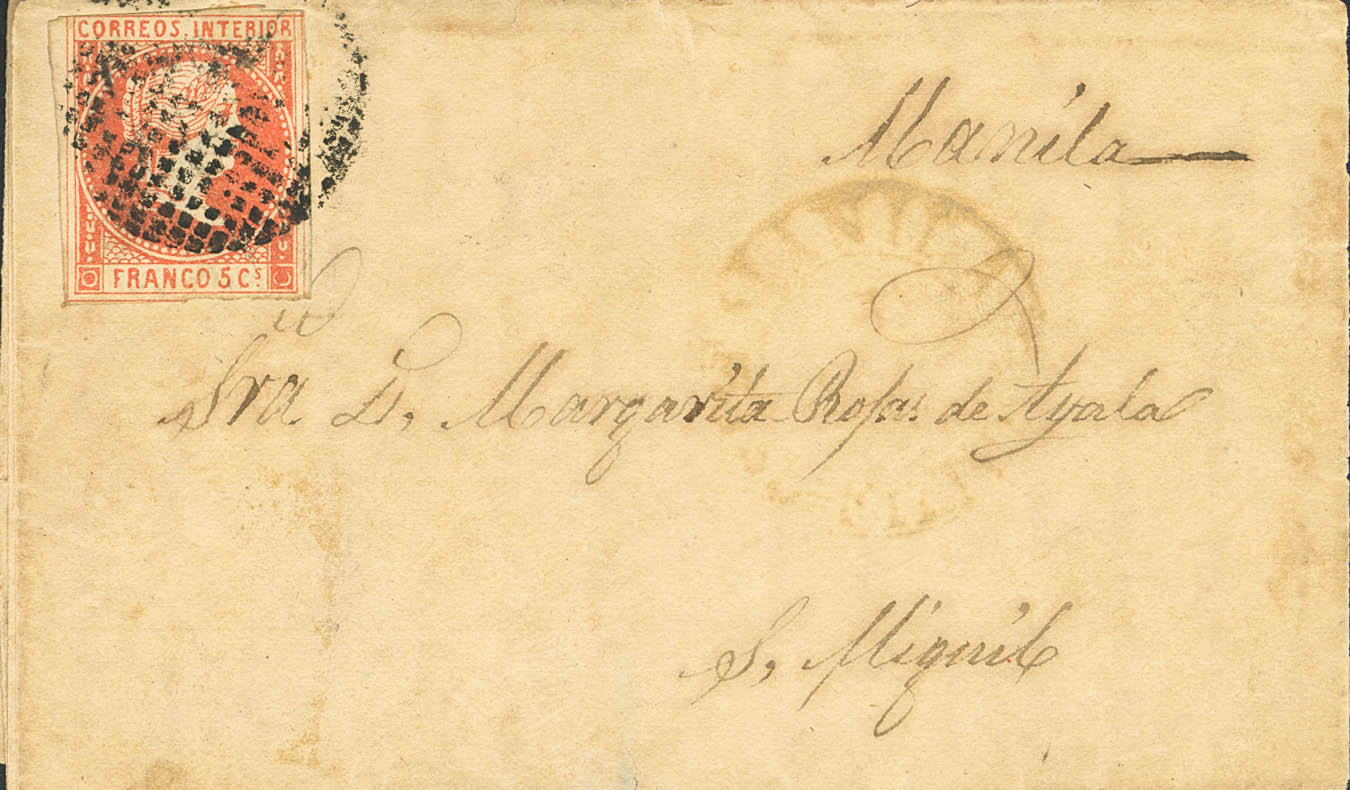 CORREOS. INTERIOR
FRANCO 5 Cs
Manila
Sra. D. Margarita Rosas de Ayala
S, Miguel